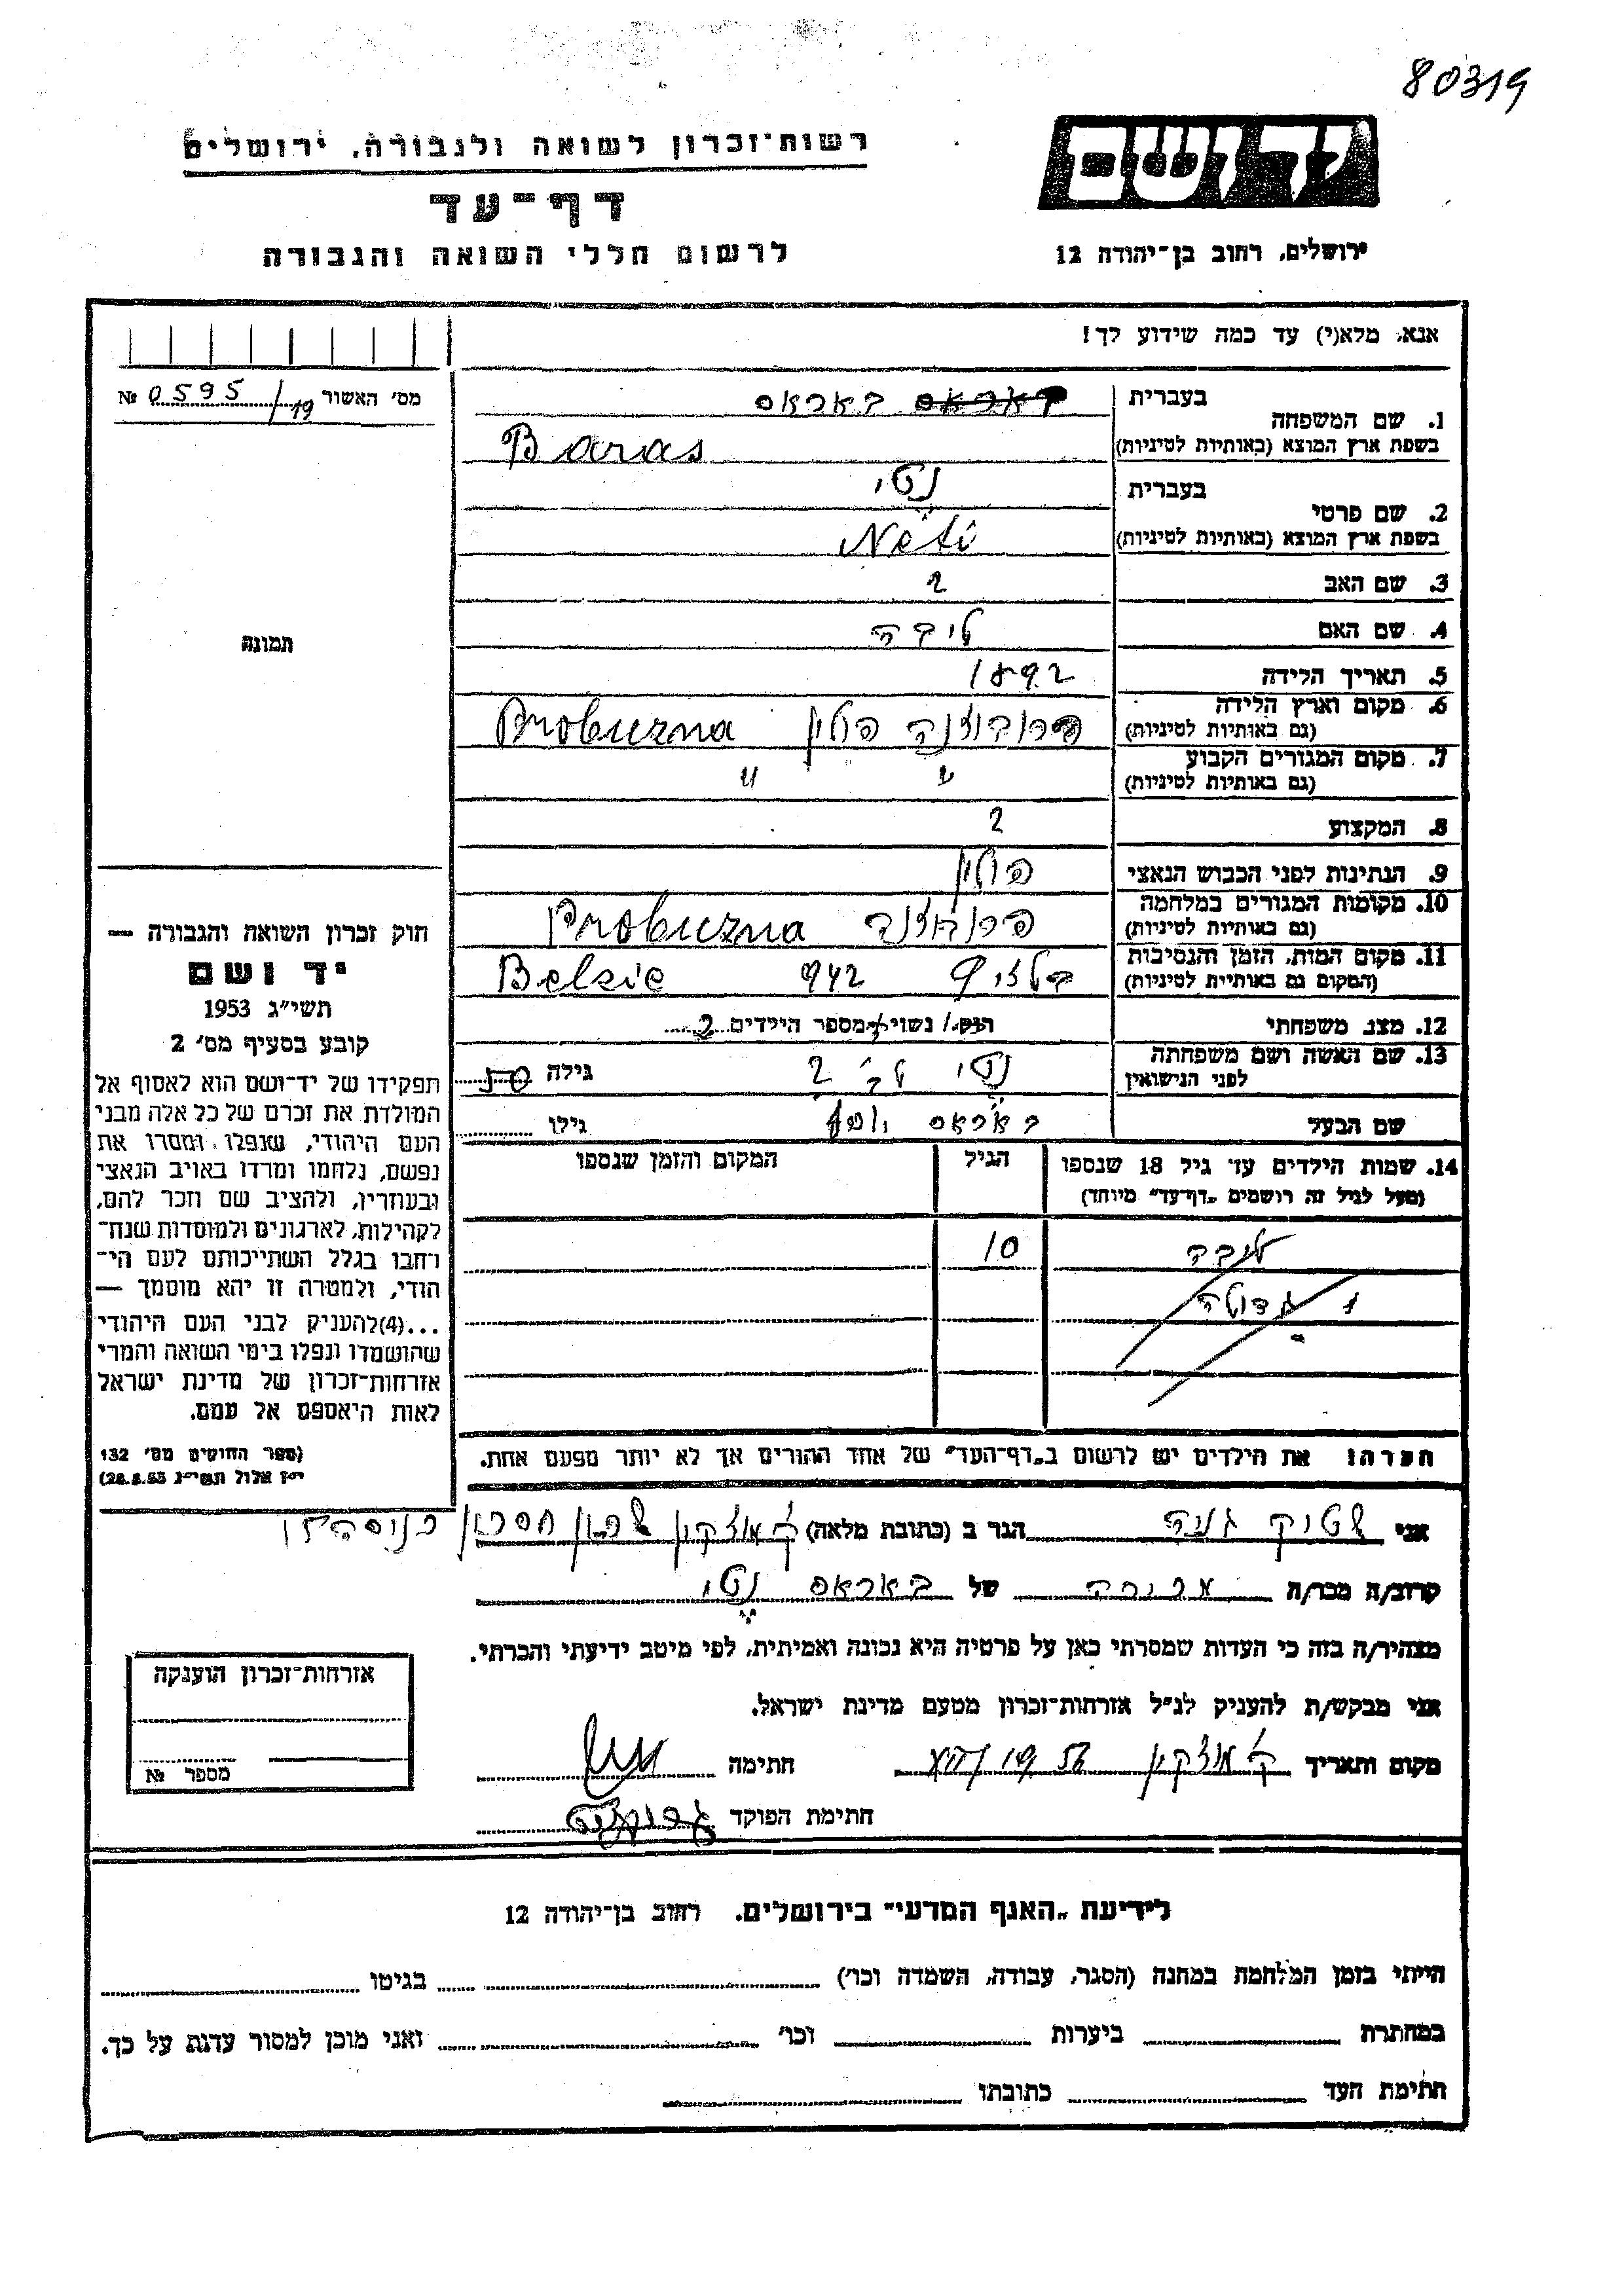 80319
יד ושם
ירושלים, רחוב בן־יהודה 12
רשות־זכרון לשואה ולגבורה, ירושלים
דף־עד
לרשום חללי השואה והגבורה
אנא, מלא(י) עד כמה שידוע לך!
מס' האשור 0595/19 №
תמונה
1. שם המשפחה
בעברית באראס
בשפת ארץ המוצא (באותיות לטיניות) Baras
2. שם פרטי
בעברית נטי
בשפת ארץ המוצא (באותיות לטיניות) Neti
3. שם האב ?
4. שם האם ליבה
5. תאריך הלידה 1892
6. מקום וארץ הלידה פרובוזנה פולין Probuzna
(גם באותיות לטיניות)
7. מקום המגורים הקבוע " "
(גם באותיות לטיניות)
8. המקצוע ?
9. הנתינות לפני הכבוש הנאצי פולין
10. מקומות המגורים במלחמה Probuzna
(גם באותיות לטיניות)
11. מקום המות, הזמן והנסיבות 942 Belzie
(המקום גם באותיות לטיניות)
12. מצב משפחתי רוק/ נשוי/ מספר הילדים 2
13. שם האשה ושם משפחתה נטי ? גילה 50
לפני הנישואין
שם הבעל באראס יוסף גילו
14. שמות הילדים עד גיל 18 שנספו הגיל המקום והזמן שנספו
(מעל לגיל זה רושמים „דף־עד" מיוחד)
ליבה 10
1 גדולה
הערה! את הילדים יש לרשום ב„דף־העד" של אחד ההורים אך לא יותר מפעם אחת.
חוק זכרון השואה והגבורה —
יד ושם
תשי"ג 1953
קובע בסעיף מס' 2
תפקידו של יד־ושם הוא לאסוף אל
המולדת את זכרם של כל אלה מבני
העם היהודי, שנפלו ומסרו את
נפשם, נלחמו ומרדו באויב הנאצי
ובעוזריו, ולהציב שם וזכר להם,
לקהילות, לארגונים ולמוסדות שנח־
רבו בגלל השתייכותם לעם הי־
הודי, ולמטרה זו יהא מוסמך —
...(4) להעניק לבני העם היהודי
שהושמדו ונפלו בימי השואה והמרי
אזרחות־זכרון של מדינת ישראל
לאות היאספם אל עמם.
(ספר החוקים מס' 132
י"ז אלול תשי"ג 28.8.53)
אני שטויק גניה הגר ב (כתובת מלאה) ק. מוצקין
קרוב/ה מכר/ה מכירה של באראס נטי
מצהיר/ה בזה כי העדות שמסרתי כאן על פרטיה היא נכונה ואמיתית, לפי מיטב ידיעתי והכרתי.
אני מבקש/ת להעניק לנ"ל אזרחות־זכרון מטעם מדינת ישראל.
מקום ותאריך ק. מוצקין חתימה
חתימת הפוקד
אזרחות־זכרון הוענקה
מספר №
לידיעת „האגף המדעי" בירושלים, רחוב בן־יהודה 12
הייתי בזמן המלחמה במחנה (הסגר, עבודה, השמדה וכו') בגיטו
במחתרת ביערות וכו' ואני מוכן למסור עדות על כך.
חתימת העד כתובתו